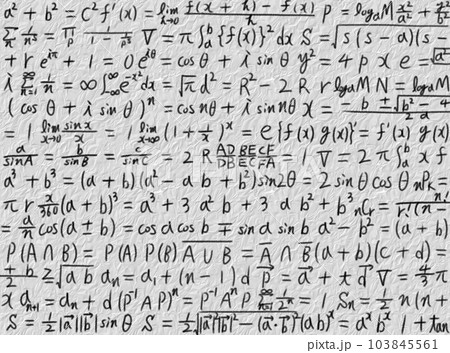 a² + b² = c² f'(x) = lim h→0 f(x + h) - f(x) / h P = log_a M x²/a² + y²/b²
∑ 1/n^s = ∏ 1/(1 - 1/p^s) ∇ = π∫_a^b {f(x)}² dx S = √s(s - a)(s -
+ r e^iπ + 1 = 0 e^iθ = cos θ + i sin θ y² = 4 p x e = √a²
i ∑ n=1 ∞ 1/n = ∞ ∫_-∞^∞ e^-x² dx = √π d² = R² - 2 R r log_a M N = log_a M
(cos θ + i sin θ)ⁿ = cos nθ + i sin nθ x = -b ± √b² - 4 / 2a
= 1 lim x→0 sin x / x = 1 lim x→∞ (1 + 1/x)^x = e {f(x) g(x)}' = f'(x) g(x)
a/sin A = b/sin B = c/sin C = 2 R AD BE CF / DB EC FA = 1 ∇ = 2 π ∫_a^b x f
a³ + b³ = (a + b)(a² - a b + b²) sin 2θ = 2 sin θ cos θ nPk =
π r x/360 (a + b)³ = a³ + 3 a² b + 3 a b² + b³ nCr = n! / r!(n -
= a/n cos(α ± β) = cos α cos β ∓ sin α sin β a² - b² = (a + b)
P(A ∩ B) = P(A) P(B) A ∪ B = A ∩ B (a + b)(c + d) =
+ b / 2 ≥ √a b a_n = a_1 + (n - 1) d p = a + t d ∇ = 4/3 π
x a_n+1 = a_n + d (P⁻¹ A P)ⁿ = P⁻¹ Aⁿ P ∑ n=1 ∞ 1/2ⁿ = 1 S_n = 1/2 n(n +
S = 1/2 |a||b| sin θ S = 1/2 √|a|²|b|² - (a·b)² (ab)^x = a^x b^x 1 + tan
103845561